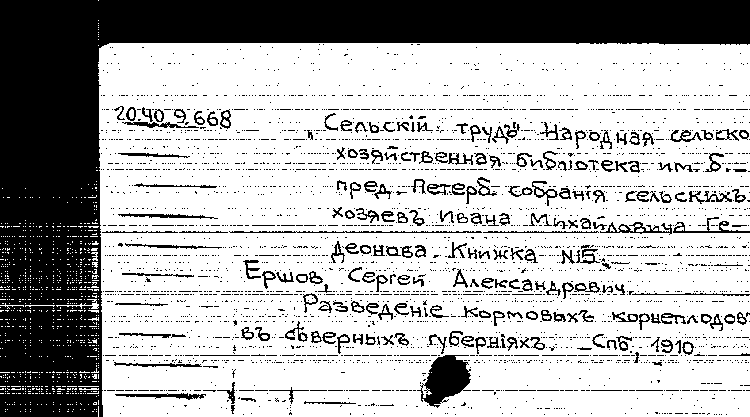 20.40.9.668
„Сельскій трудъ" Народная сельско
хозяйственная библіотека им. б.
пред. Петерб. собранія сельскихъ
хозяевъ Ивана Михайловича Ге-
деонова. Книжка №5.
Ершов, Сергей Александрович.
Разведеніе кормовыхъ корнеплодовъ
въ сѣверныхъ губерніяхъ. Спб, 1910